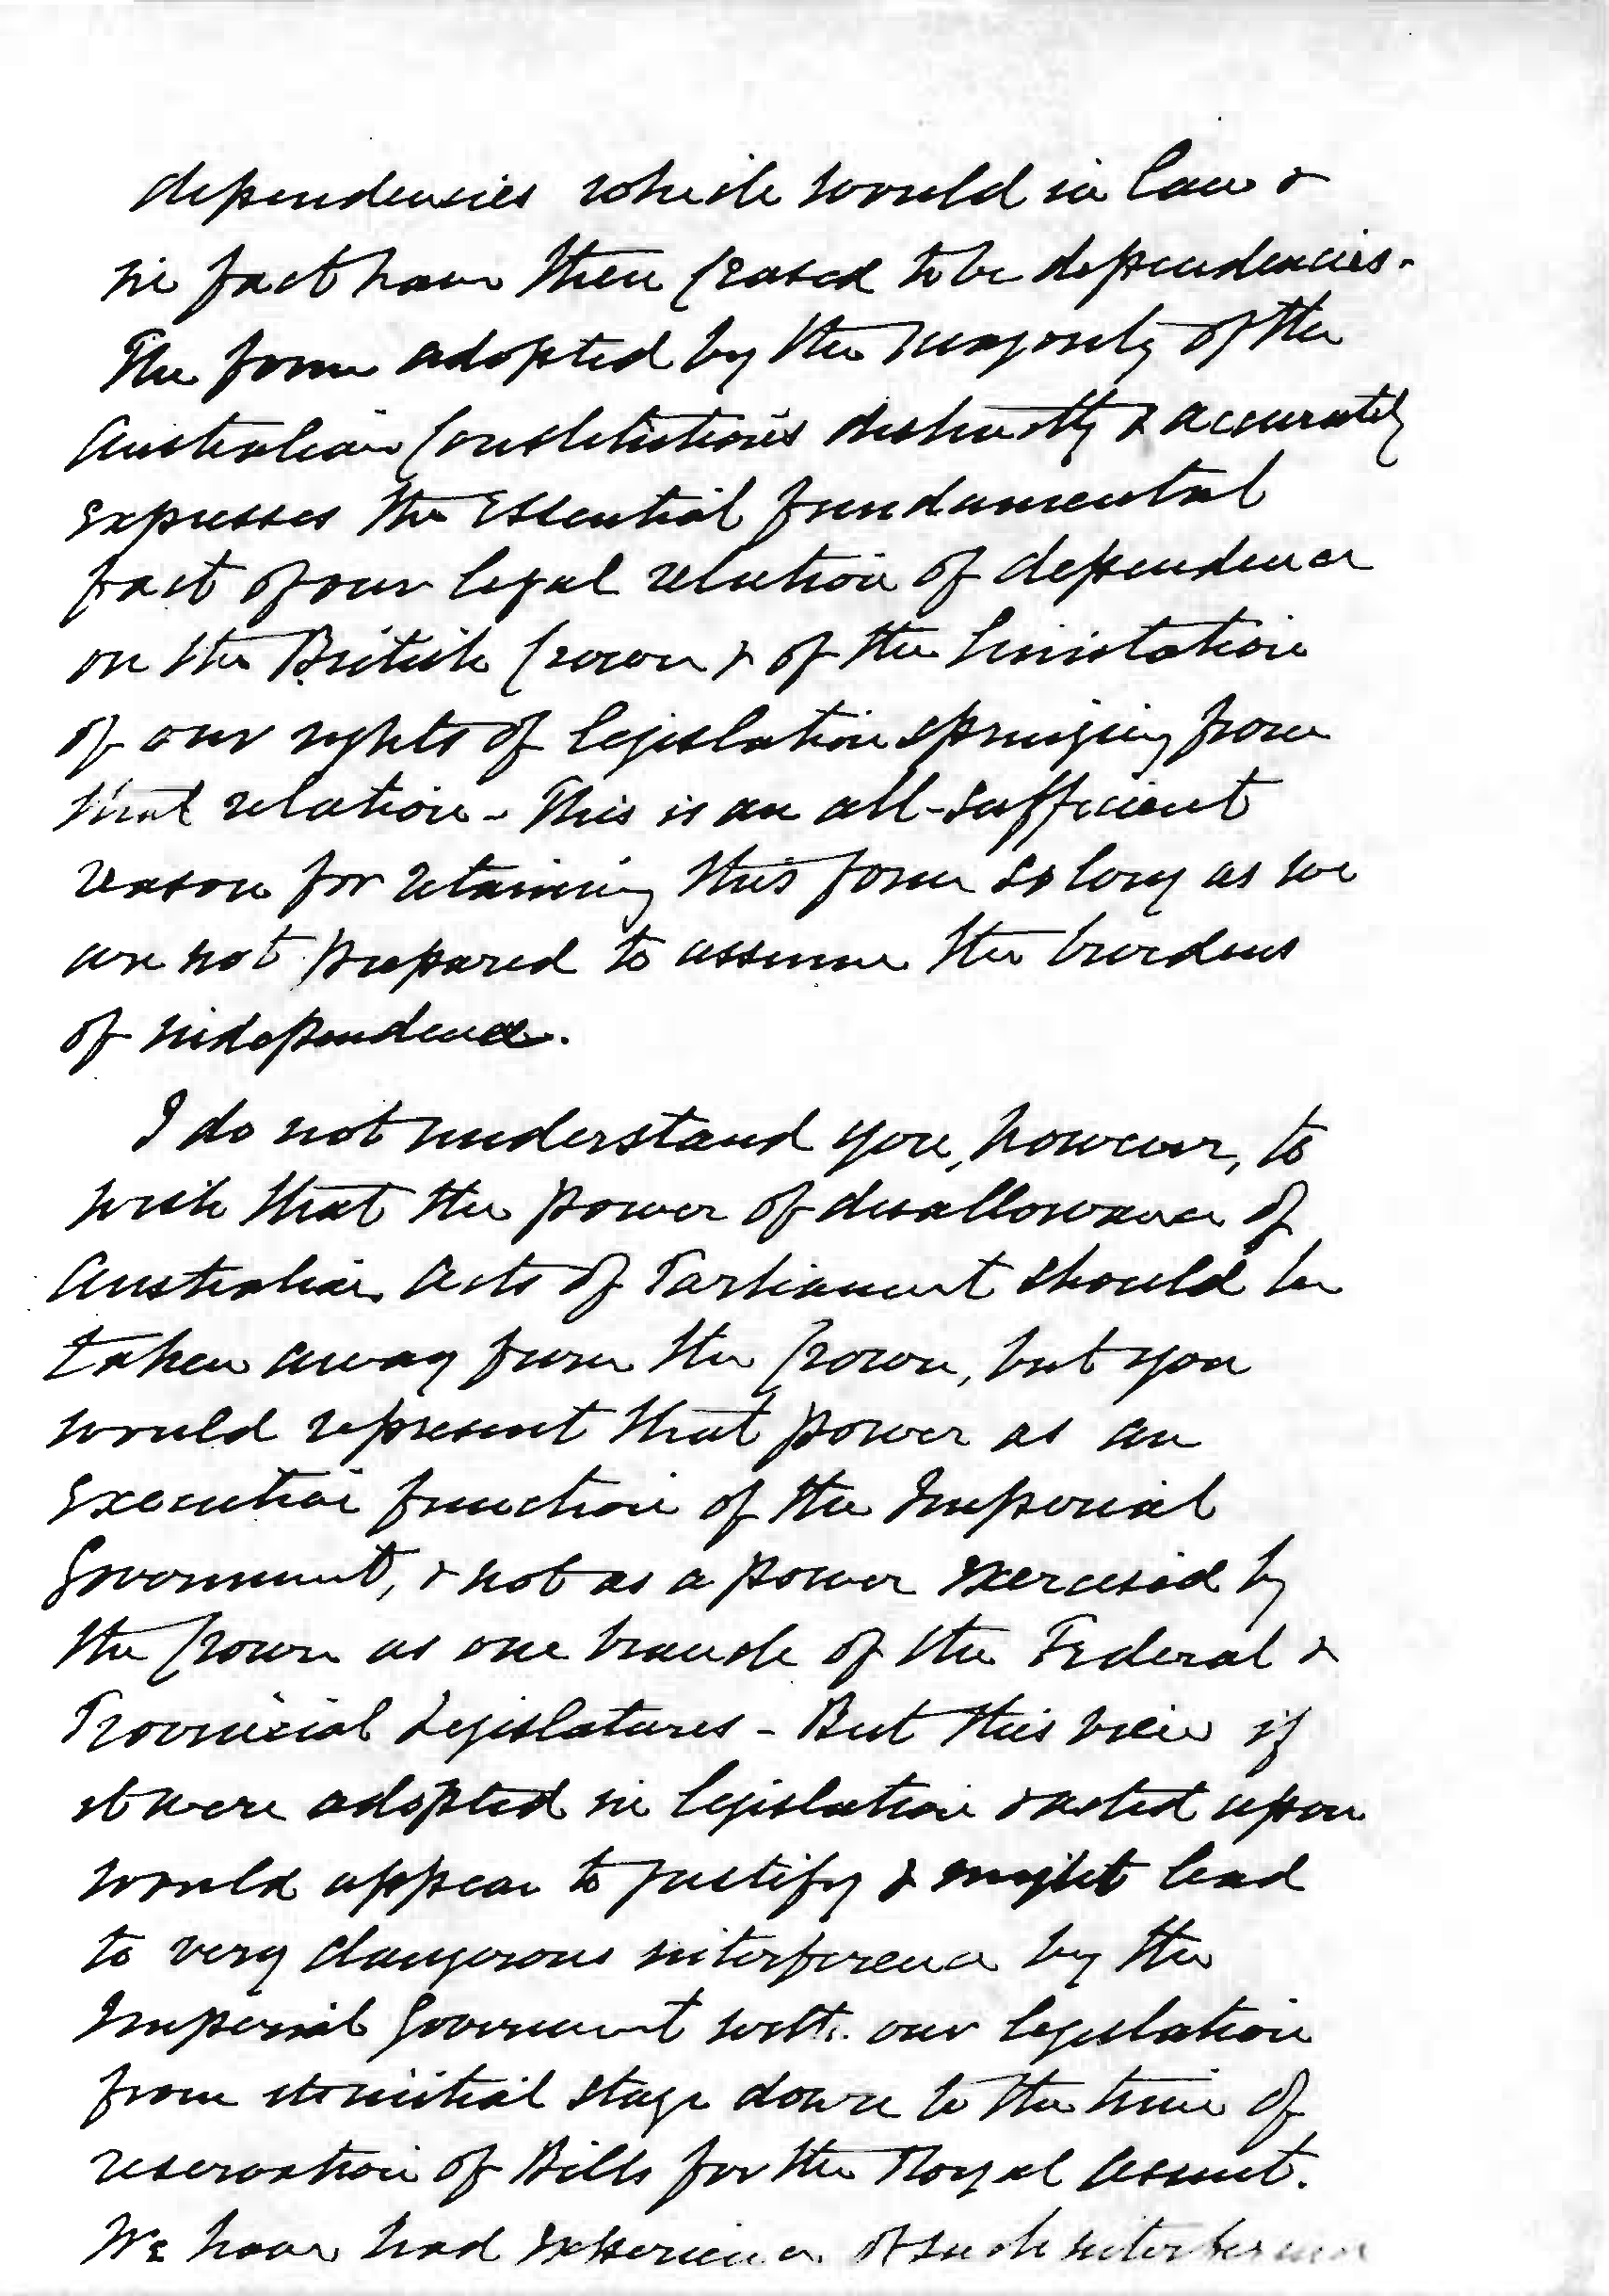 dependencies which would in law &
in fact have then ceased to be dependencies.
The form adopted by the majority of the
Australian Constitutions distinctly & accurately
expresses the essential fundamental
fact of our legal relation of dependence
on the British Crown & of the limitation
of our rights of legislation springing from
that relation - This is an all-sufficient
reason for retaining this form so long as we
are not prepared to assume the burdens
of independence.
I do not understand you, however, to
wish that the power of disallowance of
Australian Acts of Parliament should be
taken away from the Crown, but you
would represent that power as an
executive function of the Imperial
Government, & not as a power exercised by
the Crown as one branch of the Federal &
Provincial Legislatures - But this view if
it were adopted in legislation & acted upon
would appear to justify & might lead
to very dangerous interference by the
Imperial Government with our legislation
from its initial stage down to the time of
reservation of Bills for the Royal Assent.
We have had experience of such interference